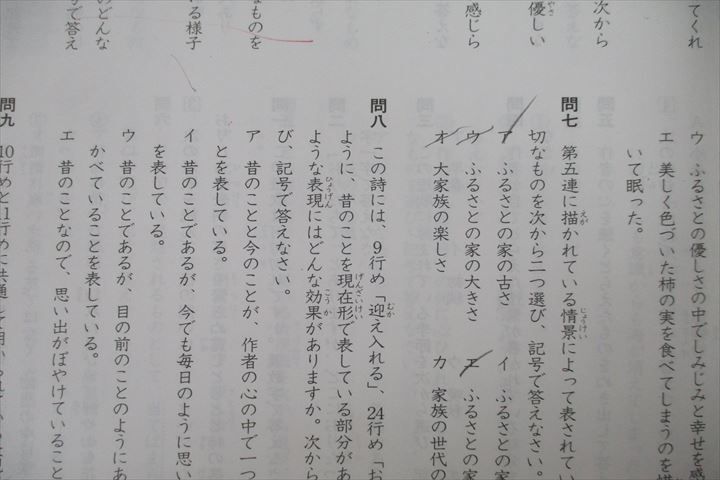 てくれ
次から
優しい
やさ
感じら
なものを
れる様子
のどんな
で答え
ウ ふるさとの優しさの中でしみじみと幸せを感
エ 美しく色づいた柿の実を食べてしまうのを惜
いて眠った。
問七 第五連に描かれている情景によって表されてい
えが
じょうけい
切なものを次から二つ選び、記号で答えなさい。
ア ふるさとの家の古さ
イ ふるさとの
ウ ふるさとの家の大きさ
エ ふるさとの家
オ 大家族の楽しさ
カ 家族の世代の
問八 この詩には、9行め「迎え入れる」、24行め「お
むか
ように、昔のことを現在形で表している部分があ
げんざいけい
ような表現にはどんな効果がありますか。次から
ひょうげん
こうか
び、記号で答えなさい。
ア 昔のことと今のことが、作者の心の中で一つ
とを表している。
イ 昔のことであるが、今でも毎日のように思い
を表している。
ウ 昔のことであるが、目の前のことのようにあ
かべていることを表している。
エ 昔のことなので、思い出がぼやけていること
問九 10行めと11行めに共通して用いられている